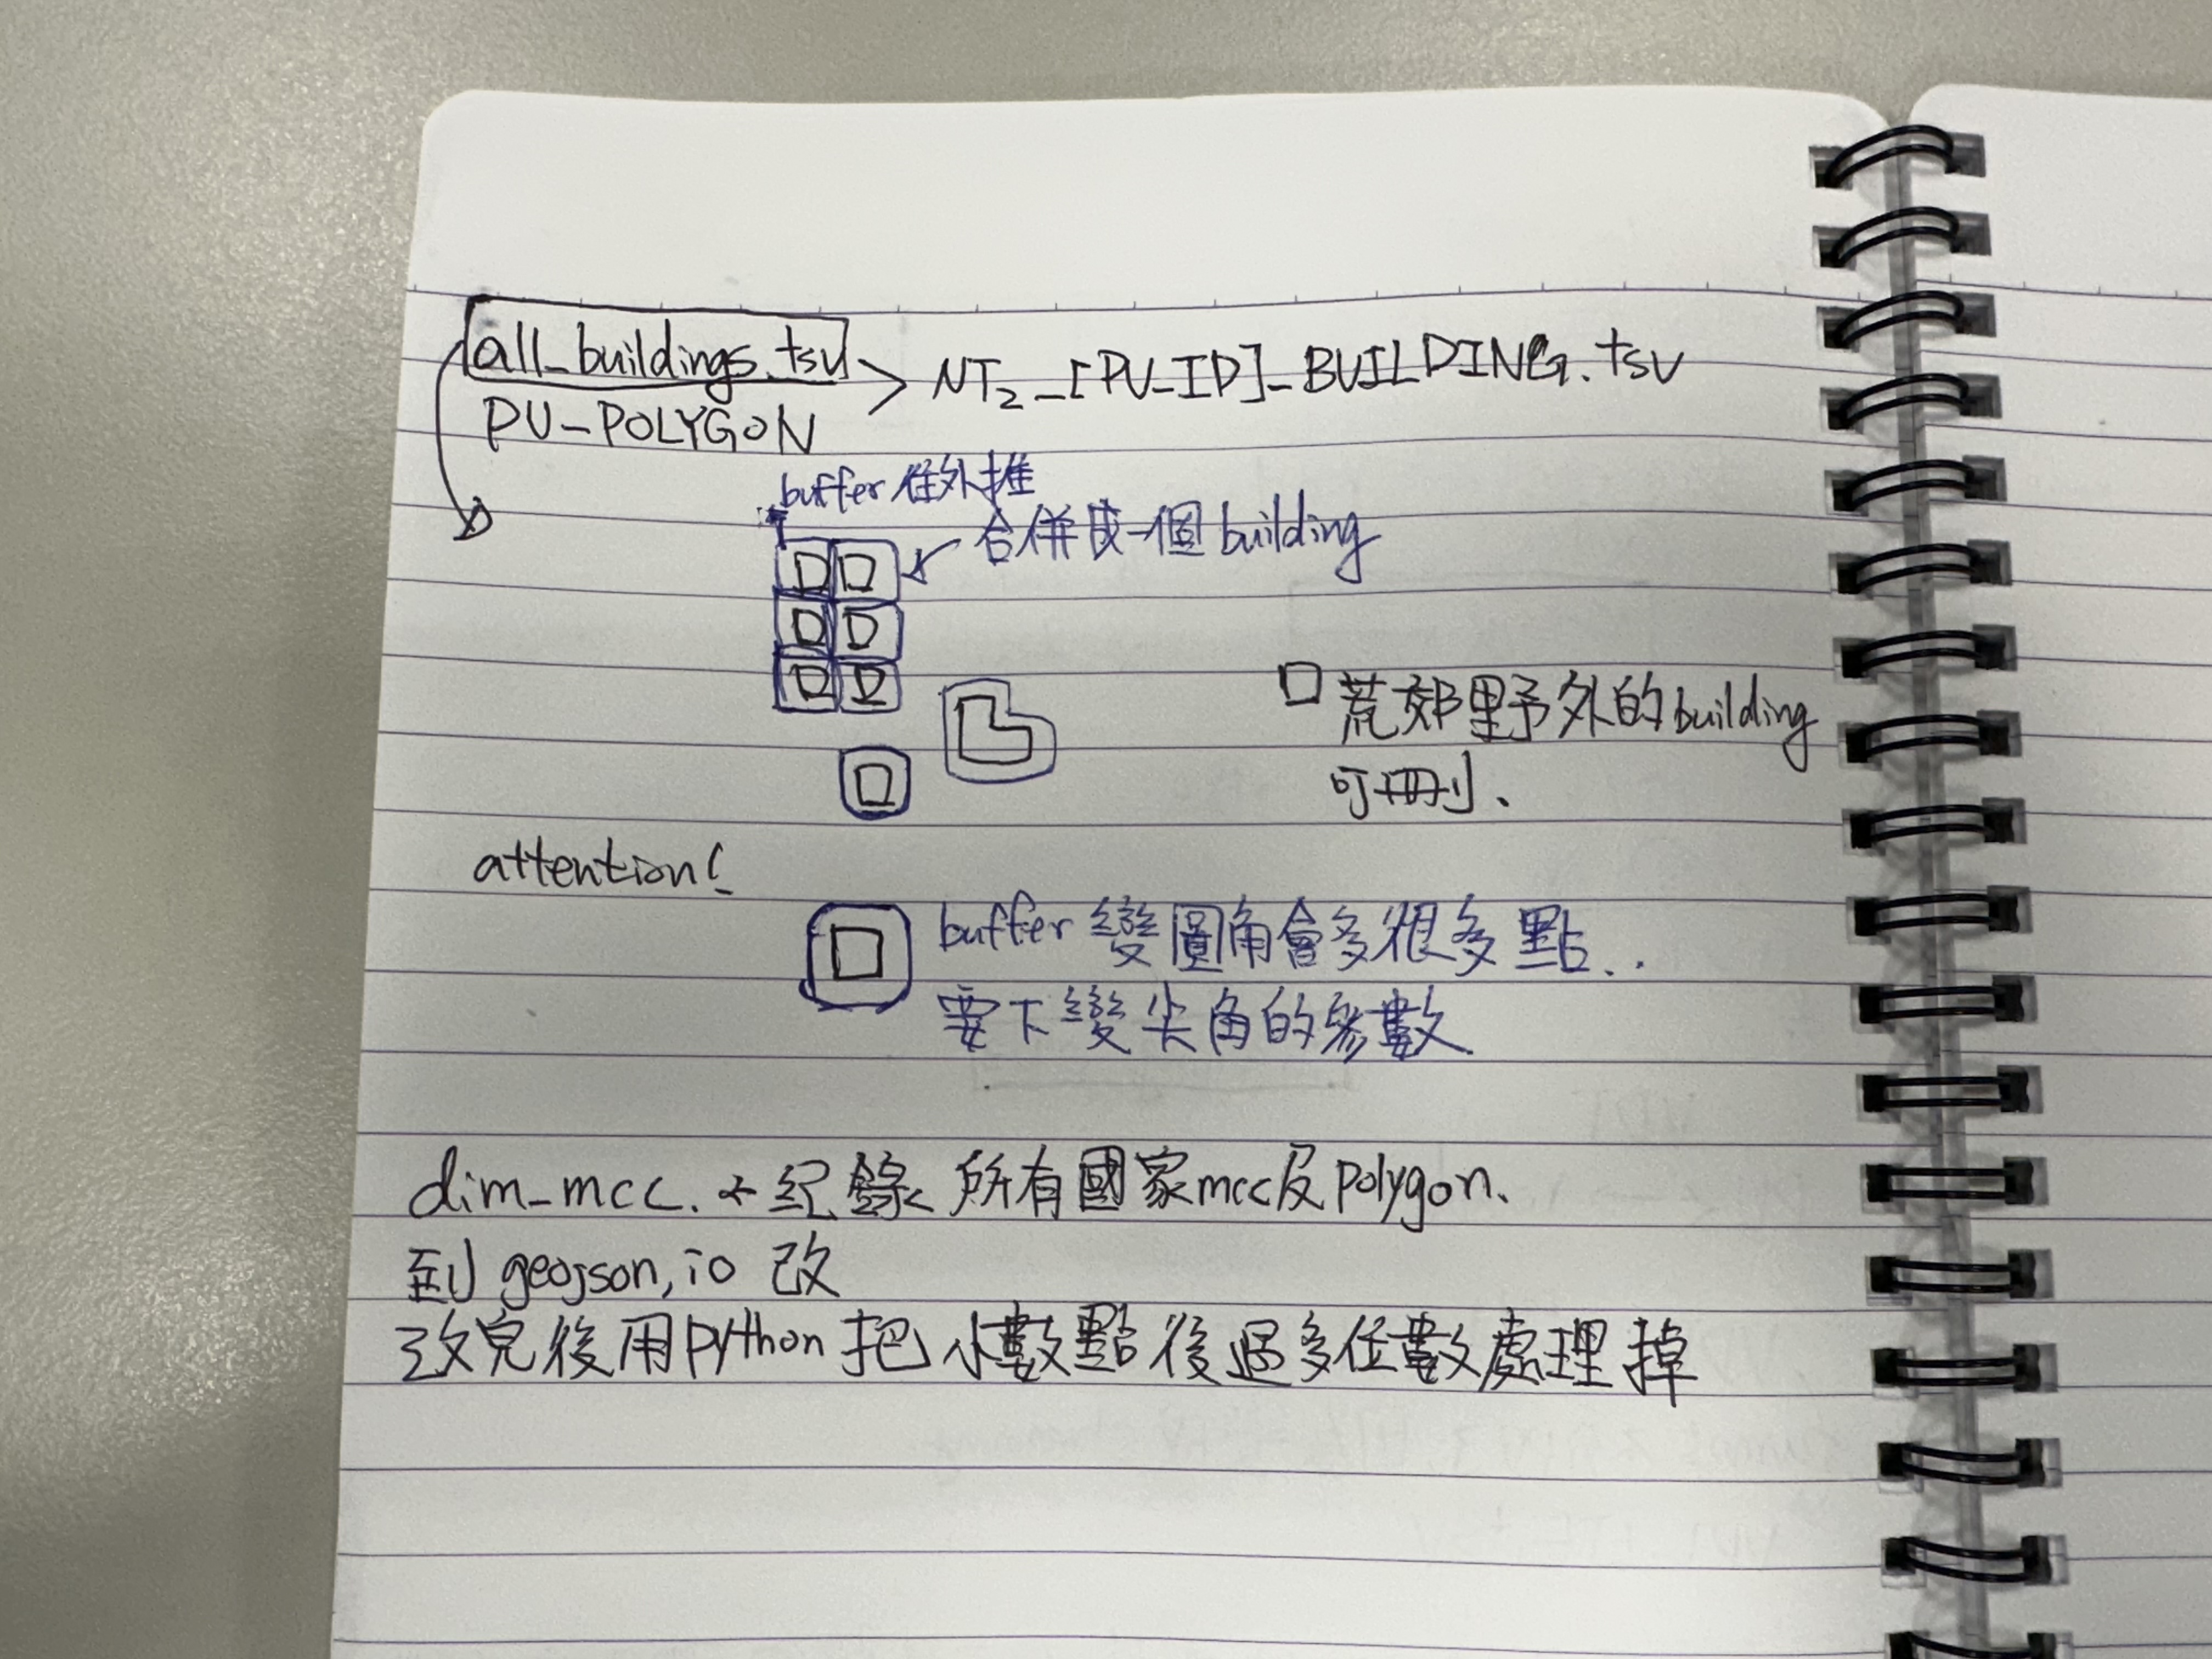 all_buildings.tsv > NT2_[PV_ID]_BUILDING.tsv
PV_POLYGON
buffer 往外推
合併成一個 building
荒郊野外的building
可刪、
attention!
buffer 變圓角會多很多點..
要下變尖角的參數.
dim_mcc. 紀錄所有國家mcc及polygon.
到 geojson.io 改
改完後用python把小數點後過多位數處理掉